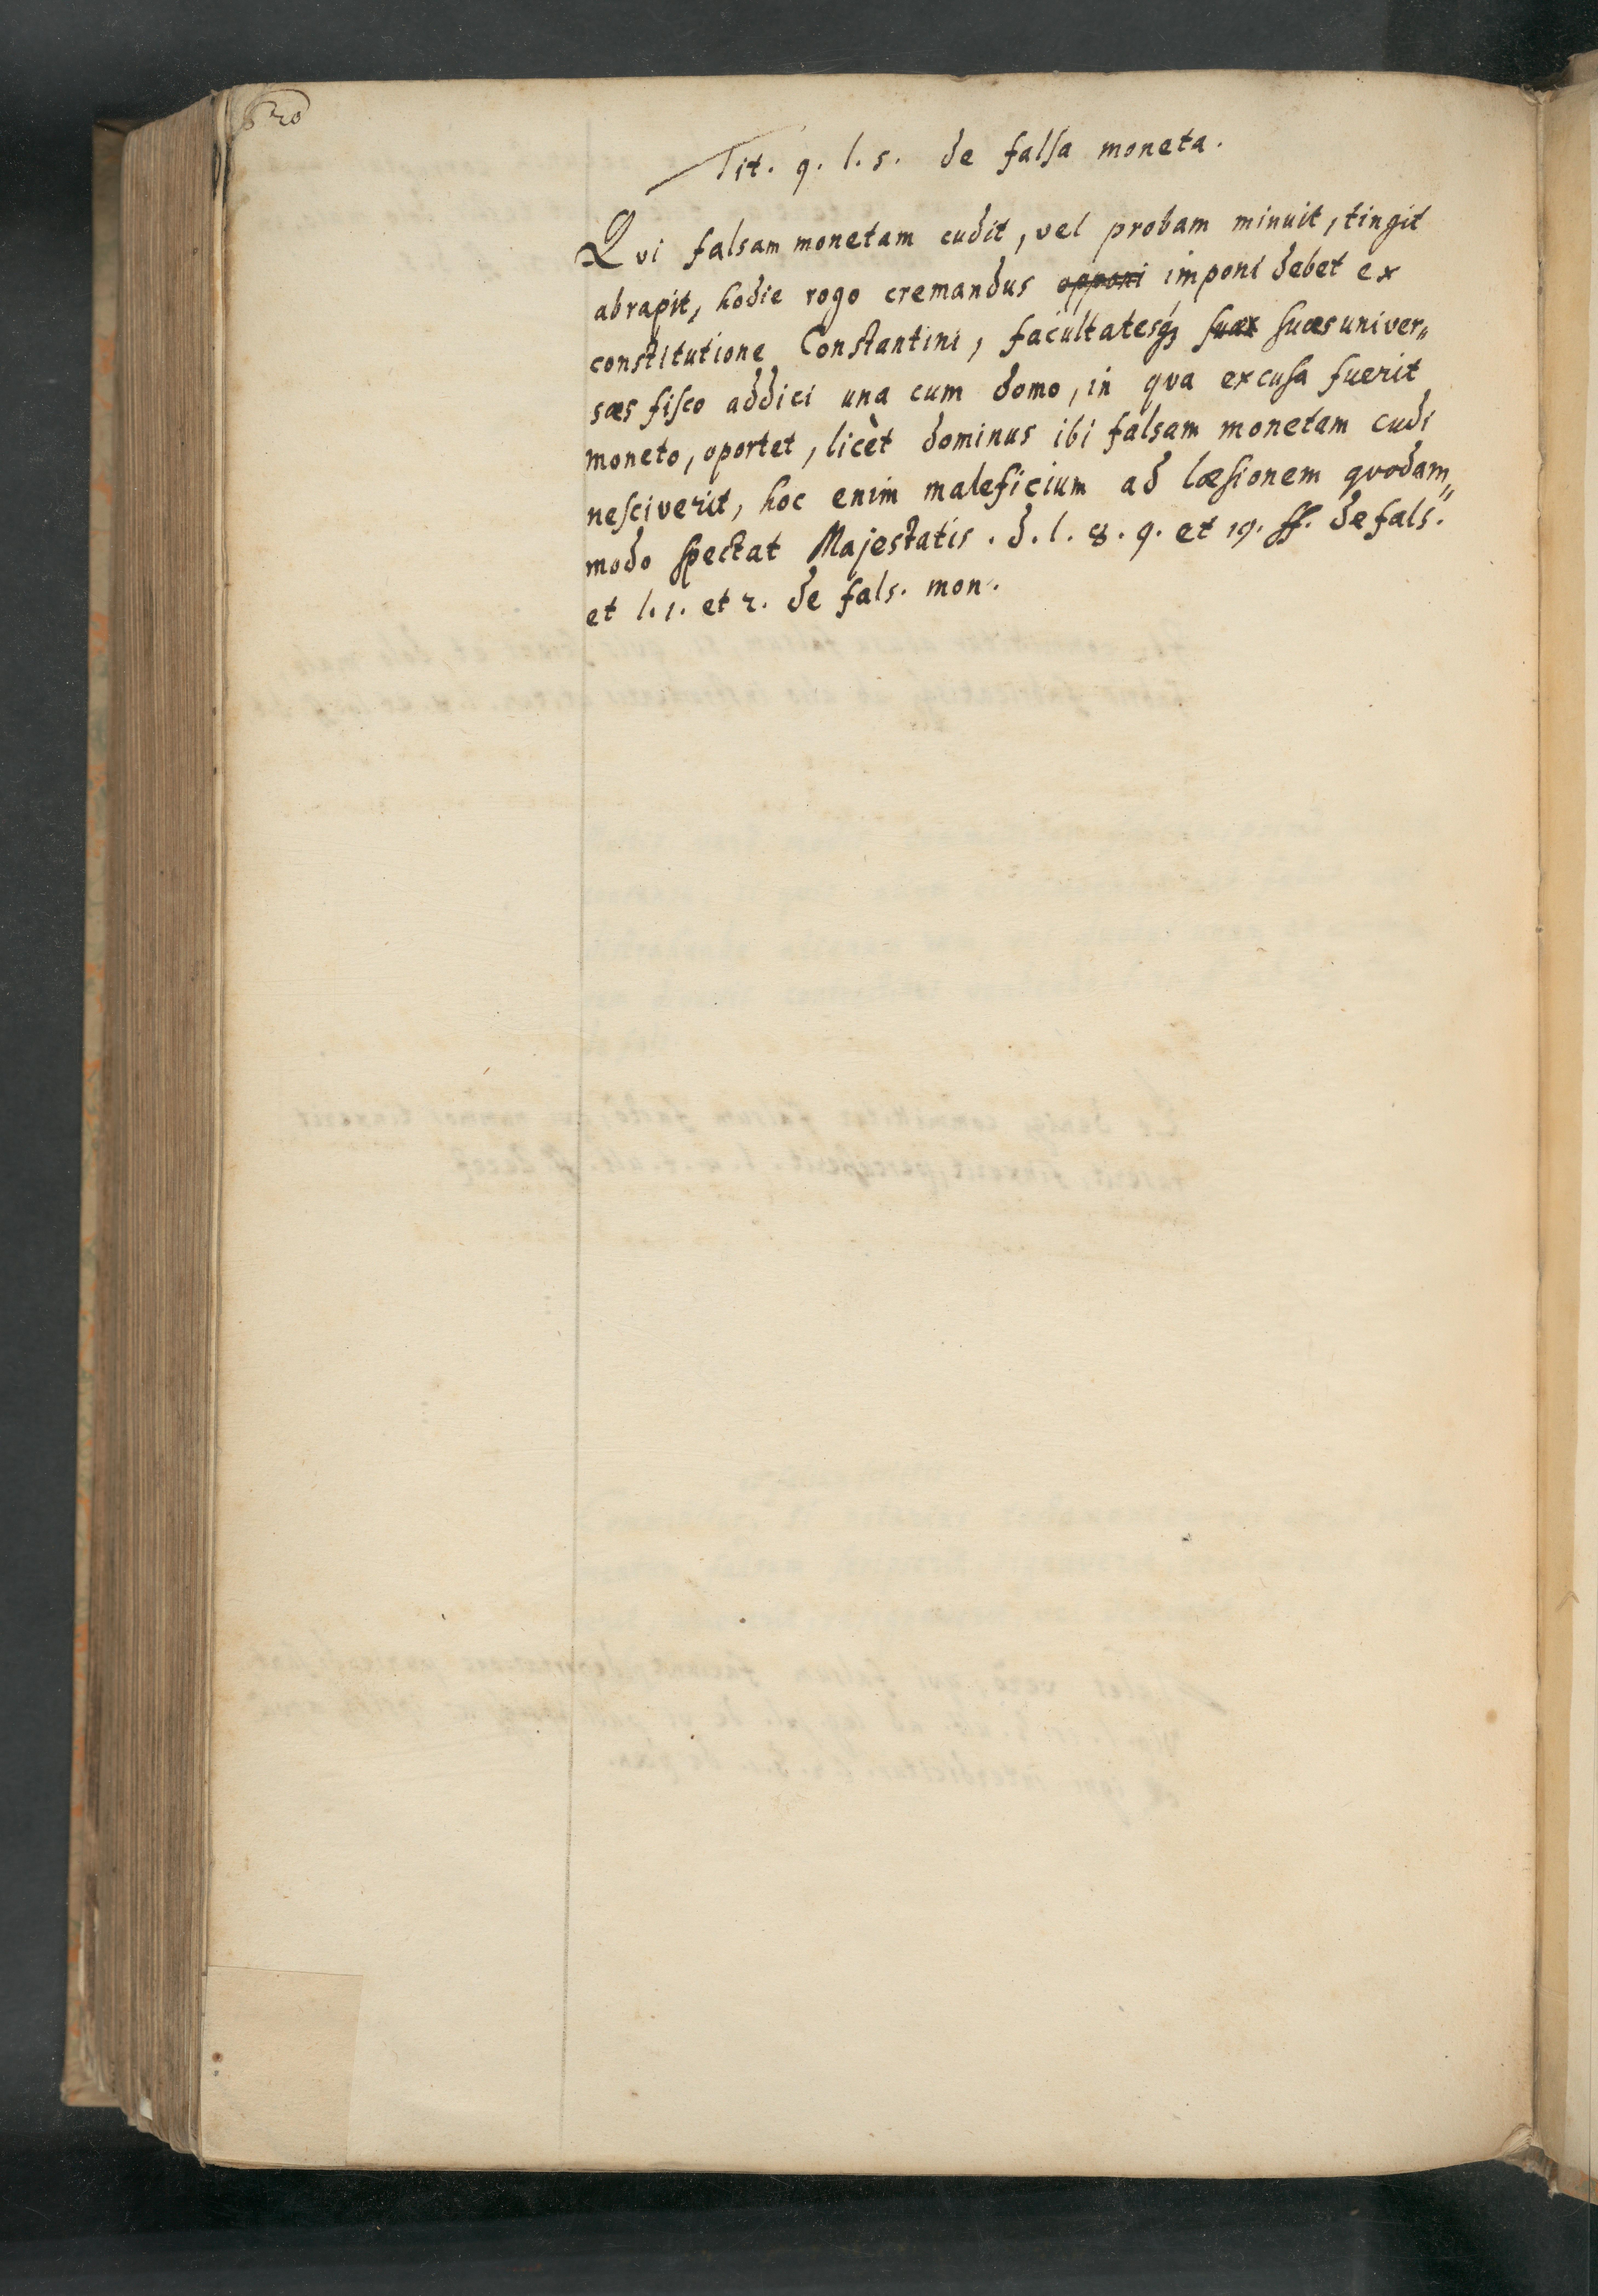 620
Tit. 9. l. 5. de falsa moneta.
Qvi falsam monetam cudit, vel probam minuit, tingit
abrapit, hodie rogo cremandus opponi imponi debet ex
constitutione Constantini, facultatesq; suax suas univer„
sas fisco addici una cum domo, in qva excusa fuerit
moneto, oportet, licèt dominus ibi falsam monetam cudi
nesciverit, hoc enim maleficium ad læsionem qvodam„
modo spectat Majestatis. d. l. 8. 9. et 19. ff. de fals.
et l. 1. et 2. de fals. mon.